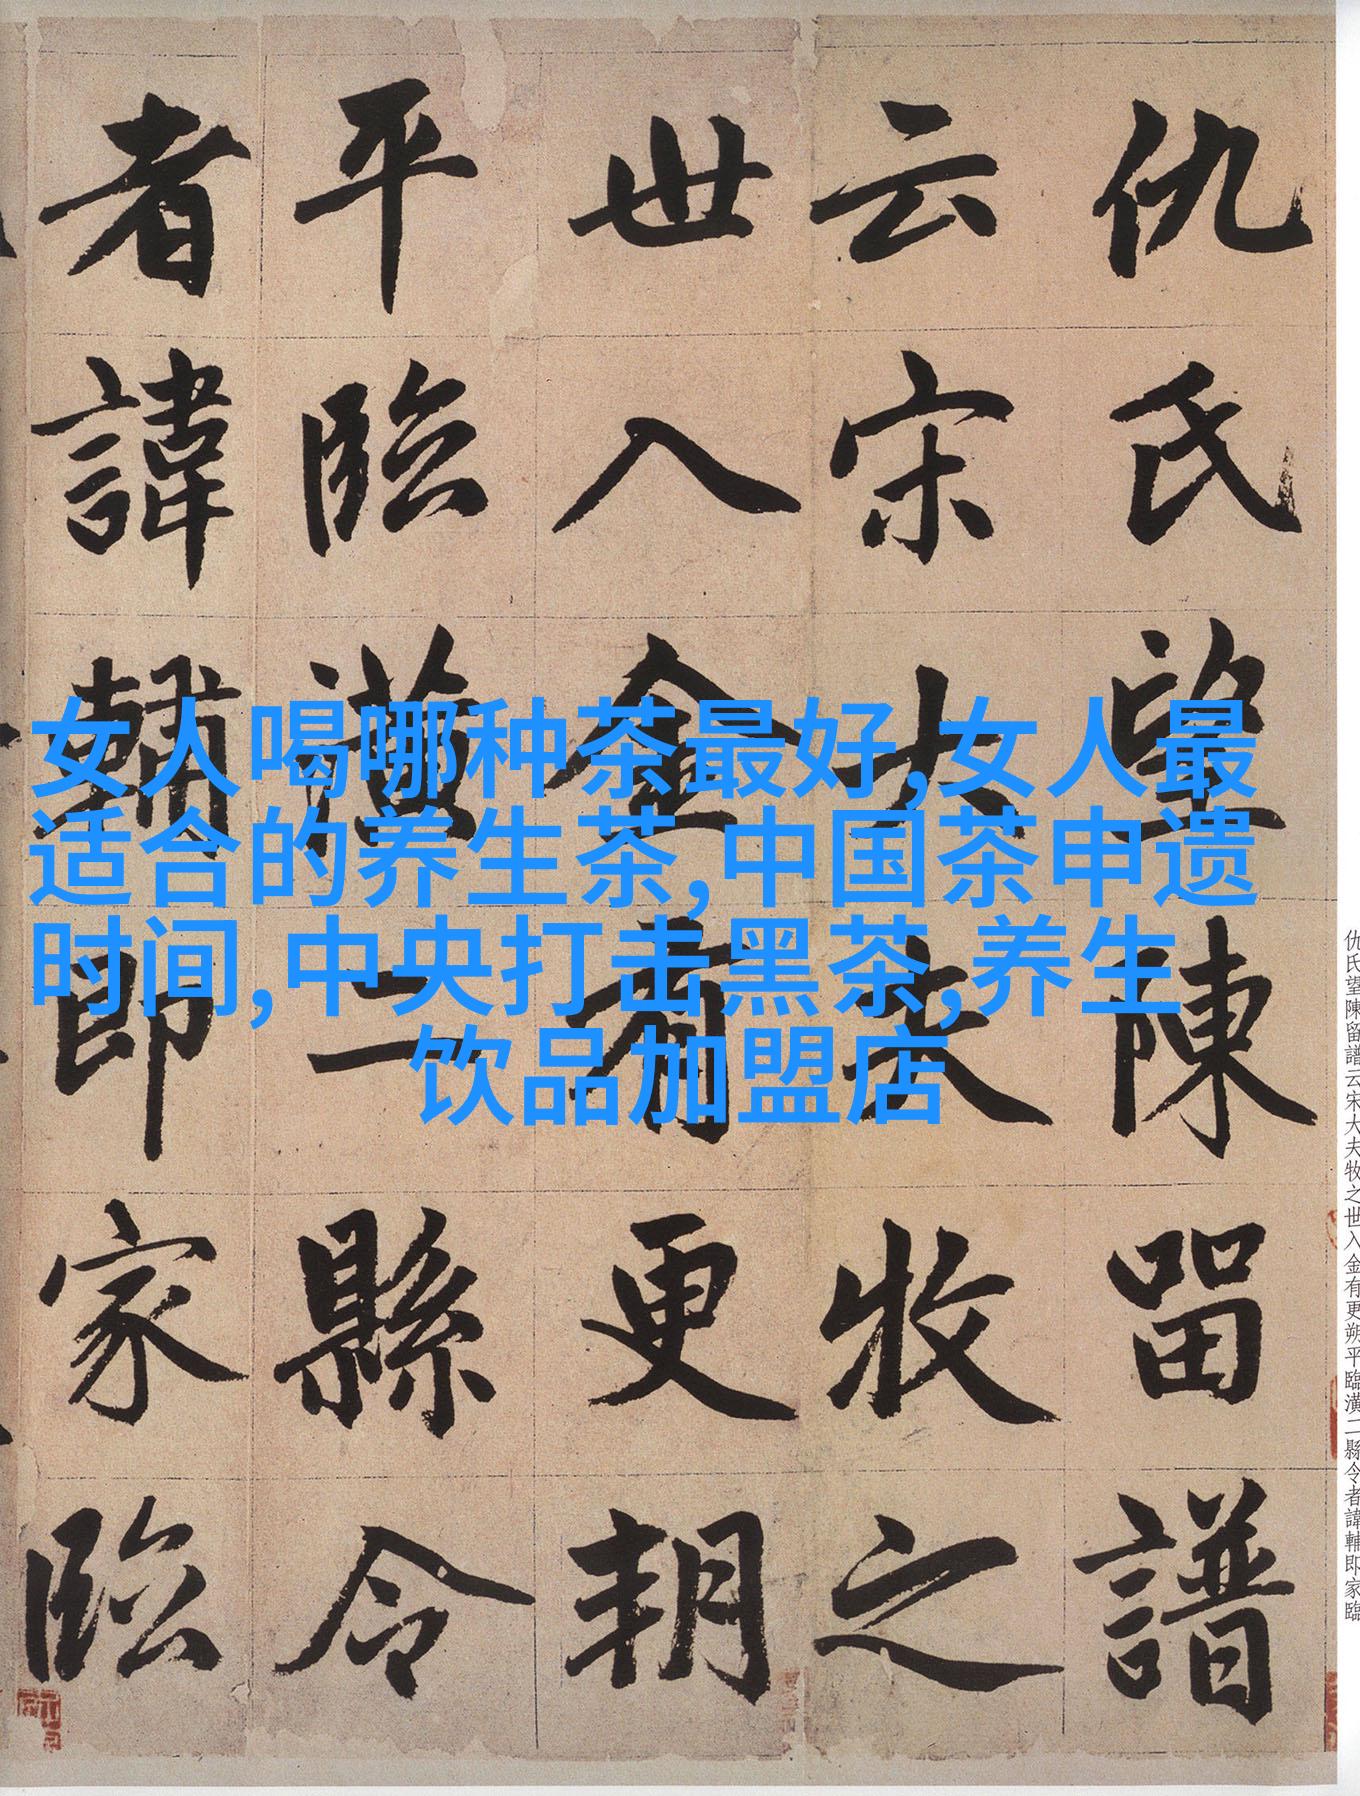 仇氏望陳留譜
云宋大夫牧之
世入金有更朔
平臨潢二縣令
者諱輔即家臨
女人喝哪种茶最好,女人最
适合的养生茶,中国茶申遗
时间,中央打击黑茶,养生
饮品加盟店
仇氏望陳留譜云宋大夫牧之世入金有更朔平臨潢二縣令者諱輔即家臨